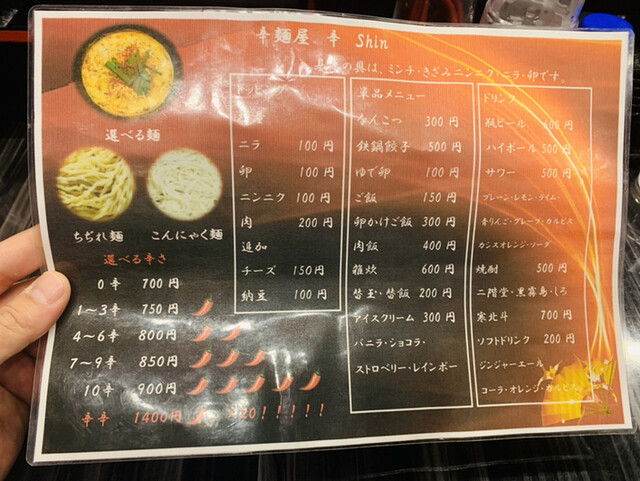 辛麺屋 辛 Shin
の具は、ミンチ・きざみニンニク・ニラ・卵です。
選べる麺
ちぢれ麺 こんにゃく麺
選べる辛さ
0辛 700円
1〜3辛 750円
4〜6辛 800円
7〜9辛 850円
10辛 900円
辛辛 1400円 ×20!!!!!
トッピング
ニラ 100円
卵 100円
ニンニク 100円
肉 200円
追加
チーズ 150円
納豆 100円
単品メニュー
なんこつ 300円
鉄鍋餃子 500円
ゆで卵 100円
ご飯 150円
卵かけご飯 300円
肉飯 400円
雑炊 600円
替玉・替飯 200円
アイスクリーム 300円
バニラ・ショコラ・
ストロベリー・レインボー
ドリンク
瓶ビール 600円
ハイボール 500円
サワー 500円
プレーン・レモン・ライム・
青りんご・グレープ・カルピス
カシスオレンジ・ソーダ
焼酎 500円
二階堂・黒霧島・しろ
寒北斗 700円
ソフトドリンク 200円
ジンジャーエール
コーラ・オレンジ・カルピス